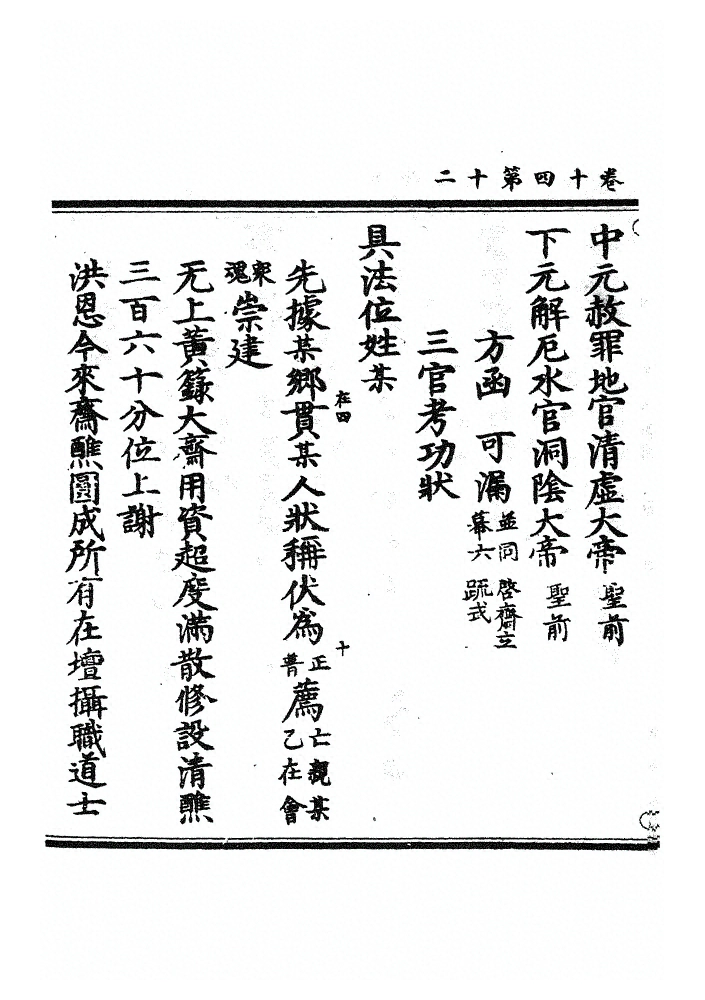 卷十四第十二
中元赦罪地官清虛大帝 聖前
下元解厄水官洞陰大帝 聖前
方函 可漏 並同啓齋立幕六疏式
三官考功狀
具法位姓某
在四 十
先據某鄉貫某人狀稱伏為正普薦亡親某乙在會
衆魂崇建
无上黃籙大齋用資超度滿散修設清醮
三百六十分位上謝
洪恩今來齋醮圓成所有在壇攝職道士